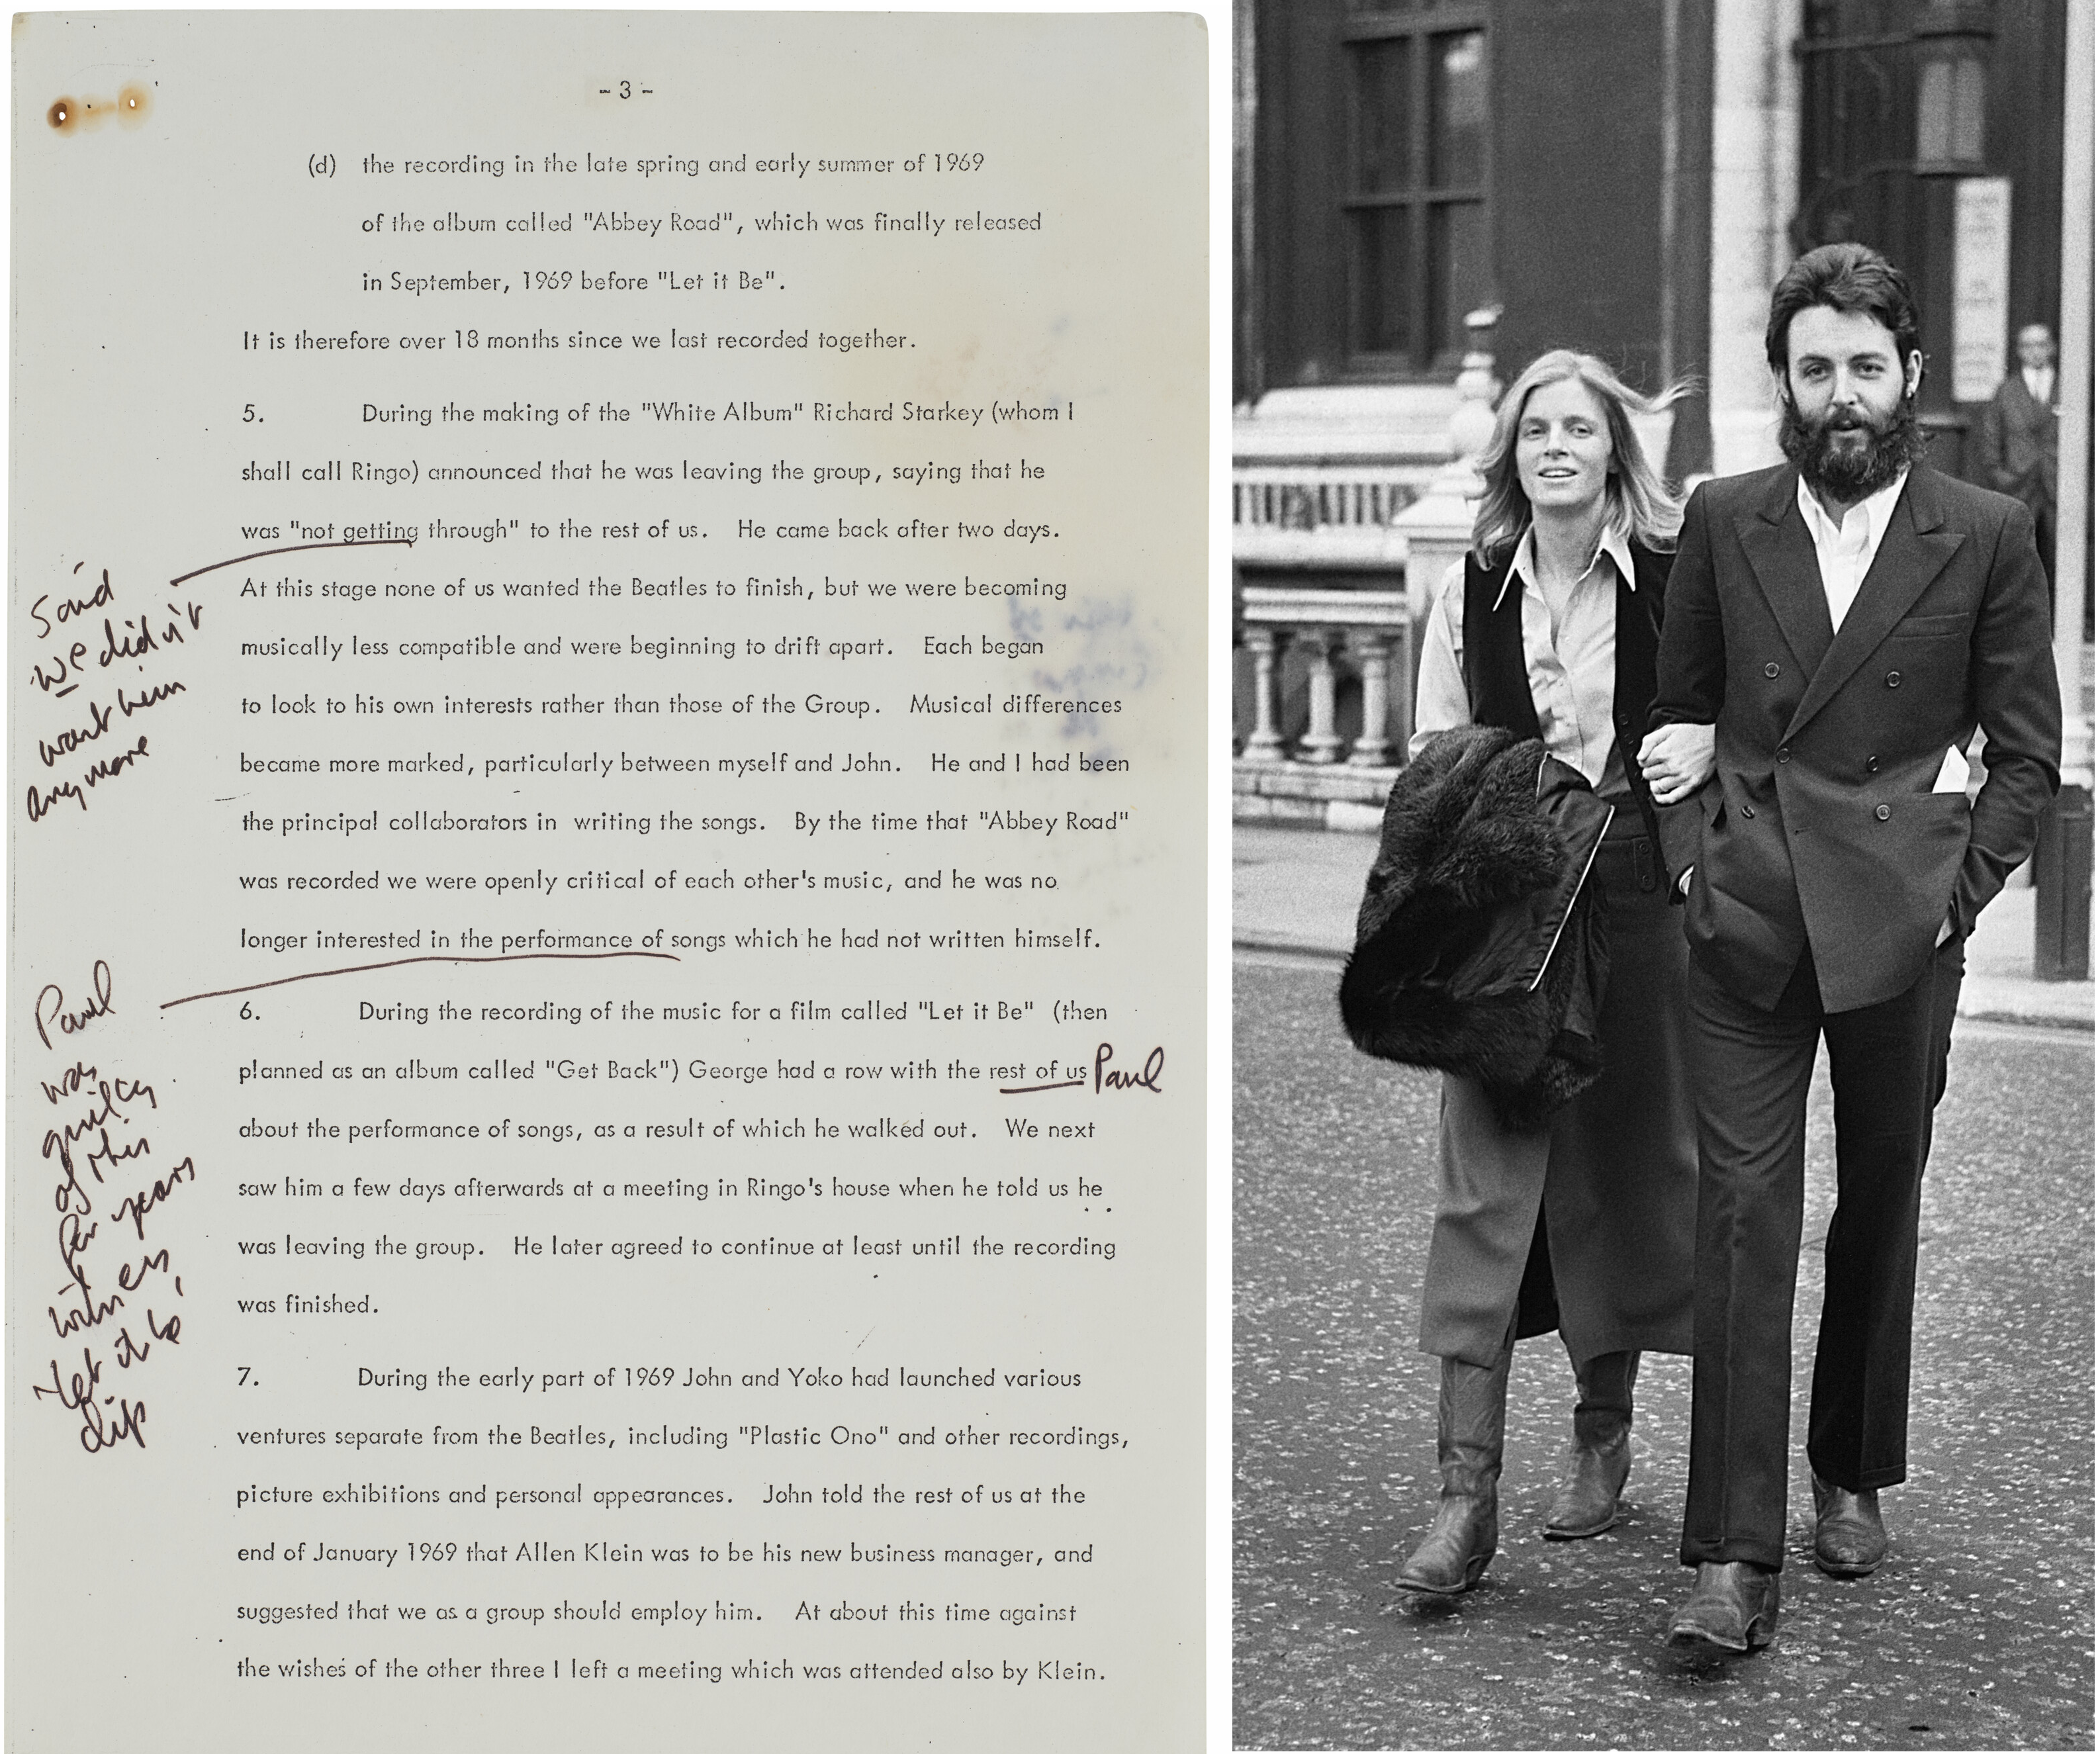 - 3 -
(d) the recording in the late spring and early summer of 1969
of the album called "Abbey Road", which was finally released
in September, 1969 before "Let it Be".
It is therefore over 18 months since we last recorded together.
5. During the making of the "White Album" Richard Starkey (whom I
shall call Ringo) announced that he was leaving the group, saying that he
was "not getting through" to the rest of us. He came back after two days.
Said
we didn't
want him
anymore
At this stage none of us wanted the Beatles to finish, but we were becoming
musically less compatible and were beginning to drift apart. Each began
to look to his own interests rather than those of the Group. Musical differences
became more marked, particularly between myself and John. He and I had been
the principal collaborators in writing the songs. By the time that "Abbey Road"
was recorded we were openly critical of each other's music, and he was no
longer interested in the performance of songs which he had not written himself.
Paul
was
guilty
of this
for years
witness
'let it be'
clip
6. During the recording of the music for a film called "Let it Be" (then
planned as an album called "Get Back") George had a row with the rest of us Paul
about the performance of songs, as a result of which he walked out. We next
saw him a few days afterwards at a meeting in Ringo's house when he told us he
was leaving the group. He later agreed to continue at least until the recording
was finished.
7. During the early part of 1969 John and Yoko had launched various
ventures separate from the Beatles, including "Plastic Ono" and other recordings,
picture exhibitions and personal appearances. John told the rest of us at the
end of January 1969 that Allen Klein was to be his new business manager, and
suggested that we as a group should employ him. At about this time against
the wishes of the other three I left a meeting which was attended also by Klein.